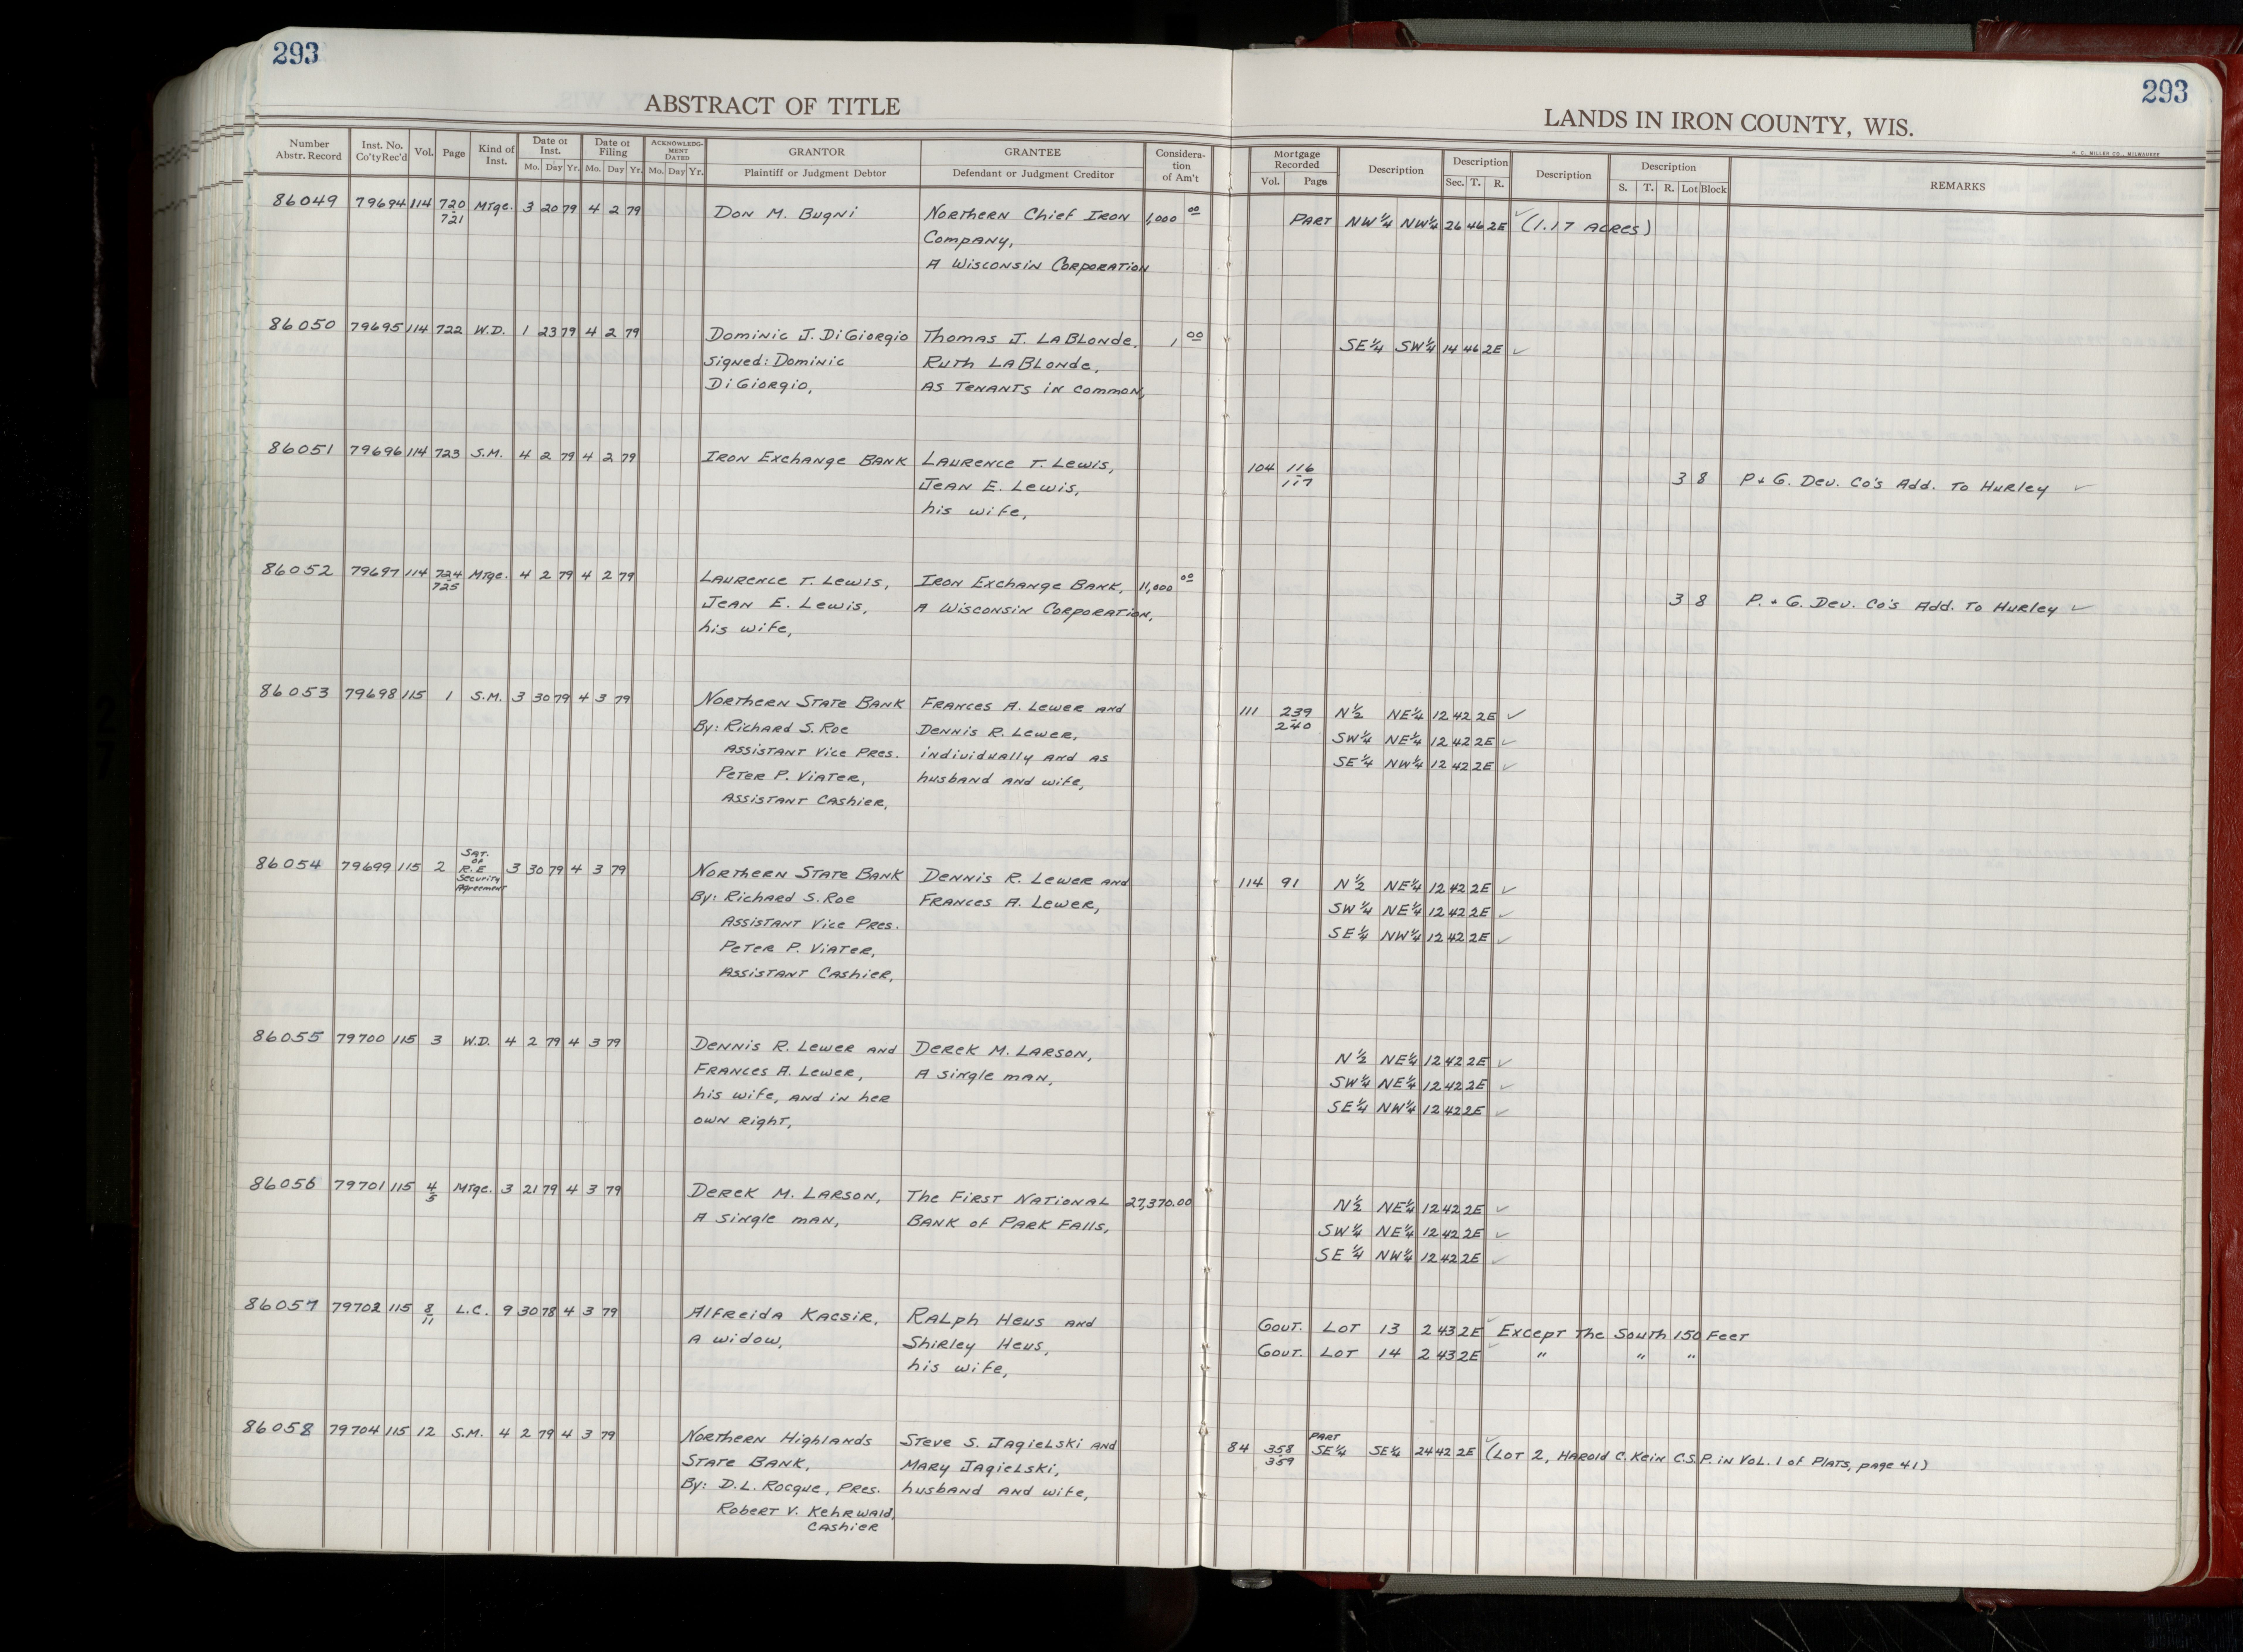 293
293
ABSTRACT OF TITLE
LANDS IN IRON COUNTY, WIS.
H. C. MILLER CO., MILWAUKEE
Number Abstr. Record Inst. No. Co'ty Rec'd Vol. Page Kind of Inst. Date of Inst. Mo. Day Yr. Date of Filing Mo. Day Yr. ACKNOWLEDGMENT DATED Mo. Day Yr. GRANTOR Plaintiff or Judgment Debtor GRANTEE Defendant or Judgment Creditor Consideration of Am't Mortgage Recorded Vol. Page Description Description Sec. T. R. Description Description S. T. R. Lot Block REMARKS
86049 79694 114 720 Mtge. 3 20 79 4 2 79 Don M. Bugni Northern Chief Iron 1,000 00 Part NW¼ NW¼ 26 46 2E ✓ (1.17 Acres)
721 Company,
A Wisconsin Corporation
86050 79695 114 722 W.D. 1 23 79 4 2 79 Dominic J. DiGiorgio Thomas J. LaBlonde, 1 00 SE¼ SW¼ 14 46 2E ✓
Signed: Dominic Ruth LaBlonde,
DiGiorgio, as tenants in common,
86051 79696 114 723 S.M. 4 2 79 4 2 79 Iron Exchange Bank Laurence T. Lewis, 104 116 3 8 P & G. Dev. Co's Add. To Hurley ✓
Jean E. Lewis, 117
his wife,
86052 79697 114 724 Mtge. 4 2 79 4 2 79 Laurence T. Lewis, Iron Exchange Bank, 11,000 00 3 8 P. & G. Dev. Co's Add. To Hurley ✓
725 Jean E. Lewis, A Wisconsin Corporation,
his wife,
86053 79698 115 1 S.M. 3 30 79 4 3 79 Northern State Bank Frances A. Lewer and 111 239 N½ NE¼ 12 42 2E ✓
By: Richard S. Roe Dennis R. Lewer, 240 SW¼ NE¼ 12 42 2E ✓
Assistant Vice Pres. individually and as SE¼ NW¼ 12 42 2E ✓
Peter P. Viater, husband and wife,
Assistant Cashier,
86054 79699 115 2 Sat. of R.E Security Agreement 3 30 79 4 3 79 Northern State Bank Dennis R. Lewer and 114 91 N½ NE¼ 12 42 2E ✓
By: Richard S. Roe Frances A. Lewer, SW¼ NE¼ 12 42 2E ✓
Assistant Vice Pres. SE¼ NW¼ 12 42 2E ✓
Peter P. Viater,
Assistant Cashier,
86055 79700 115 3 W.D. 4 2 79 4 3 79 Dennis R. Lewer and Derek M. Larson, N½ NE¼ 12 42 2E ✓
Frances A. Lewer, A single man, SW¼ NE¼ 12 42 2E ✓
his wife, and in her SE¼ NW¼ 12 42 2E ✓
own right,
86056 79701 115 4 Mtge. 3 21 79 4 3 79 Derek M. Larson, The First National 27,370.00 N½ NE¼ 12 42 2E ✓
5 A single man, Bank of Park Falls, SW¼ NE¼ 12 42 2E ✓
SE¼ NW¼ 12 42 2E ✓
86057 79702 115 8 L.C. 9 30 78 4 3 79 Alfreida Kacsir, Ralph Heus and Gout. Lot 13 2 43 2E ✓ Except The South 150 Feet
11 A widow, Shirley Heus, Gout. Lot 14 2 43 2E ✓ " " "
his wife,
86058 79704 115 12 S.M. 4 2 79 4 3 79 Northern Highlands Steve S. Jagielski and 84 358 Part SE¼ SE¼ 24 42 2E ✓ (Lot 2, Harold C. Kein C.S.P. in Vol. 1 of Plats, page 41)
State Bank, Mary Jagielski, 359
By: D.L. Rocque, Pres. husband and wife,
Robert V. Kehrwald,
Cashier